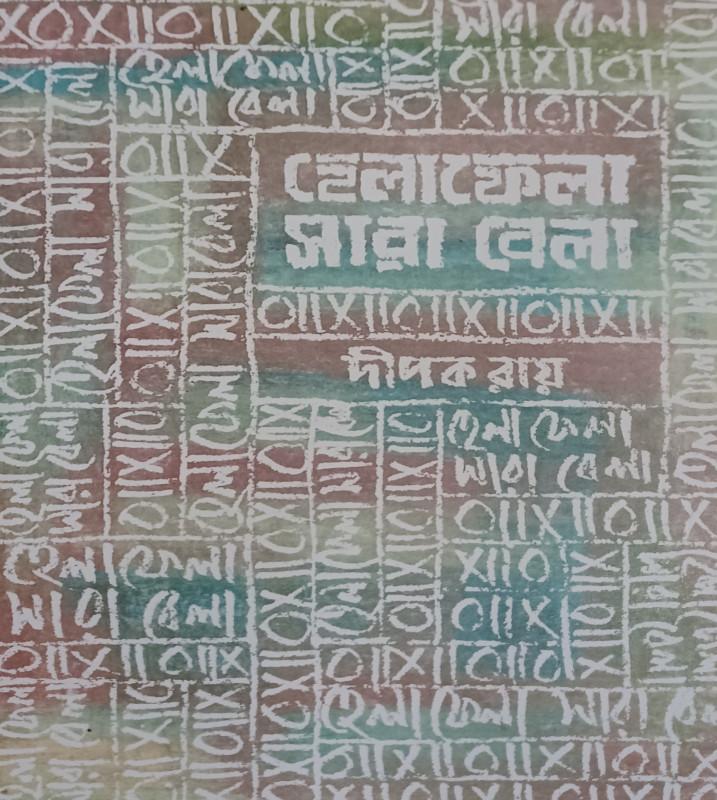 সারা বেলা
হেলা ফেলা
সারা বেলা
হেলাফেলা
সারা বেলা
দীপক রায়
হেলা ফেলা
সারা বেলা
হেলা ফেলা
সারা বেলা
হেলা ফেলা সারা